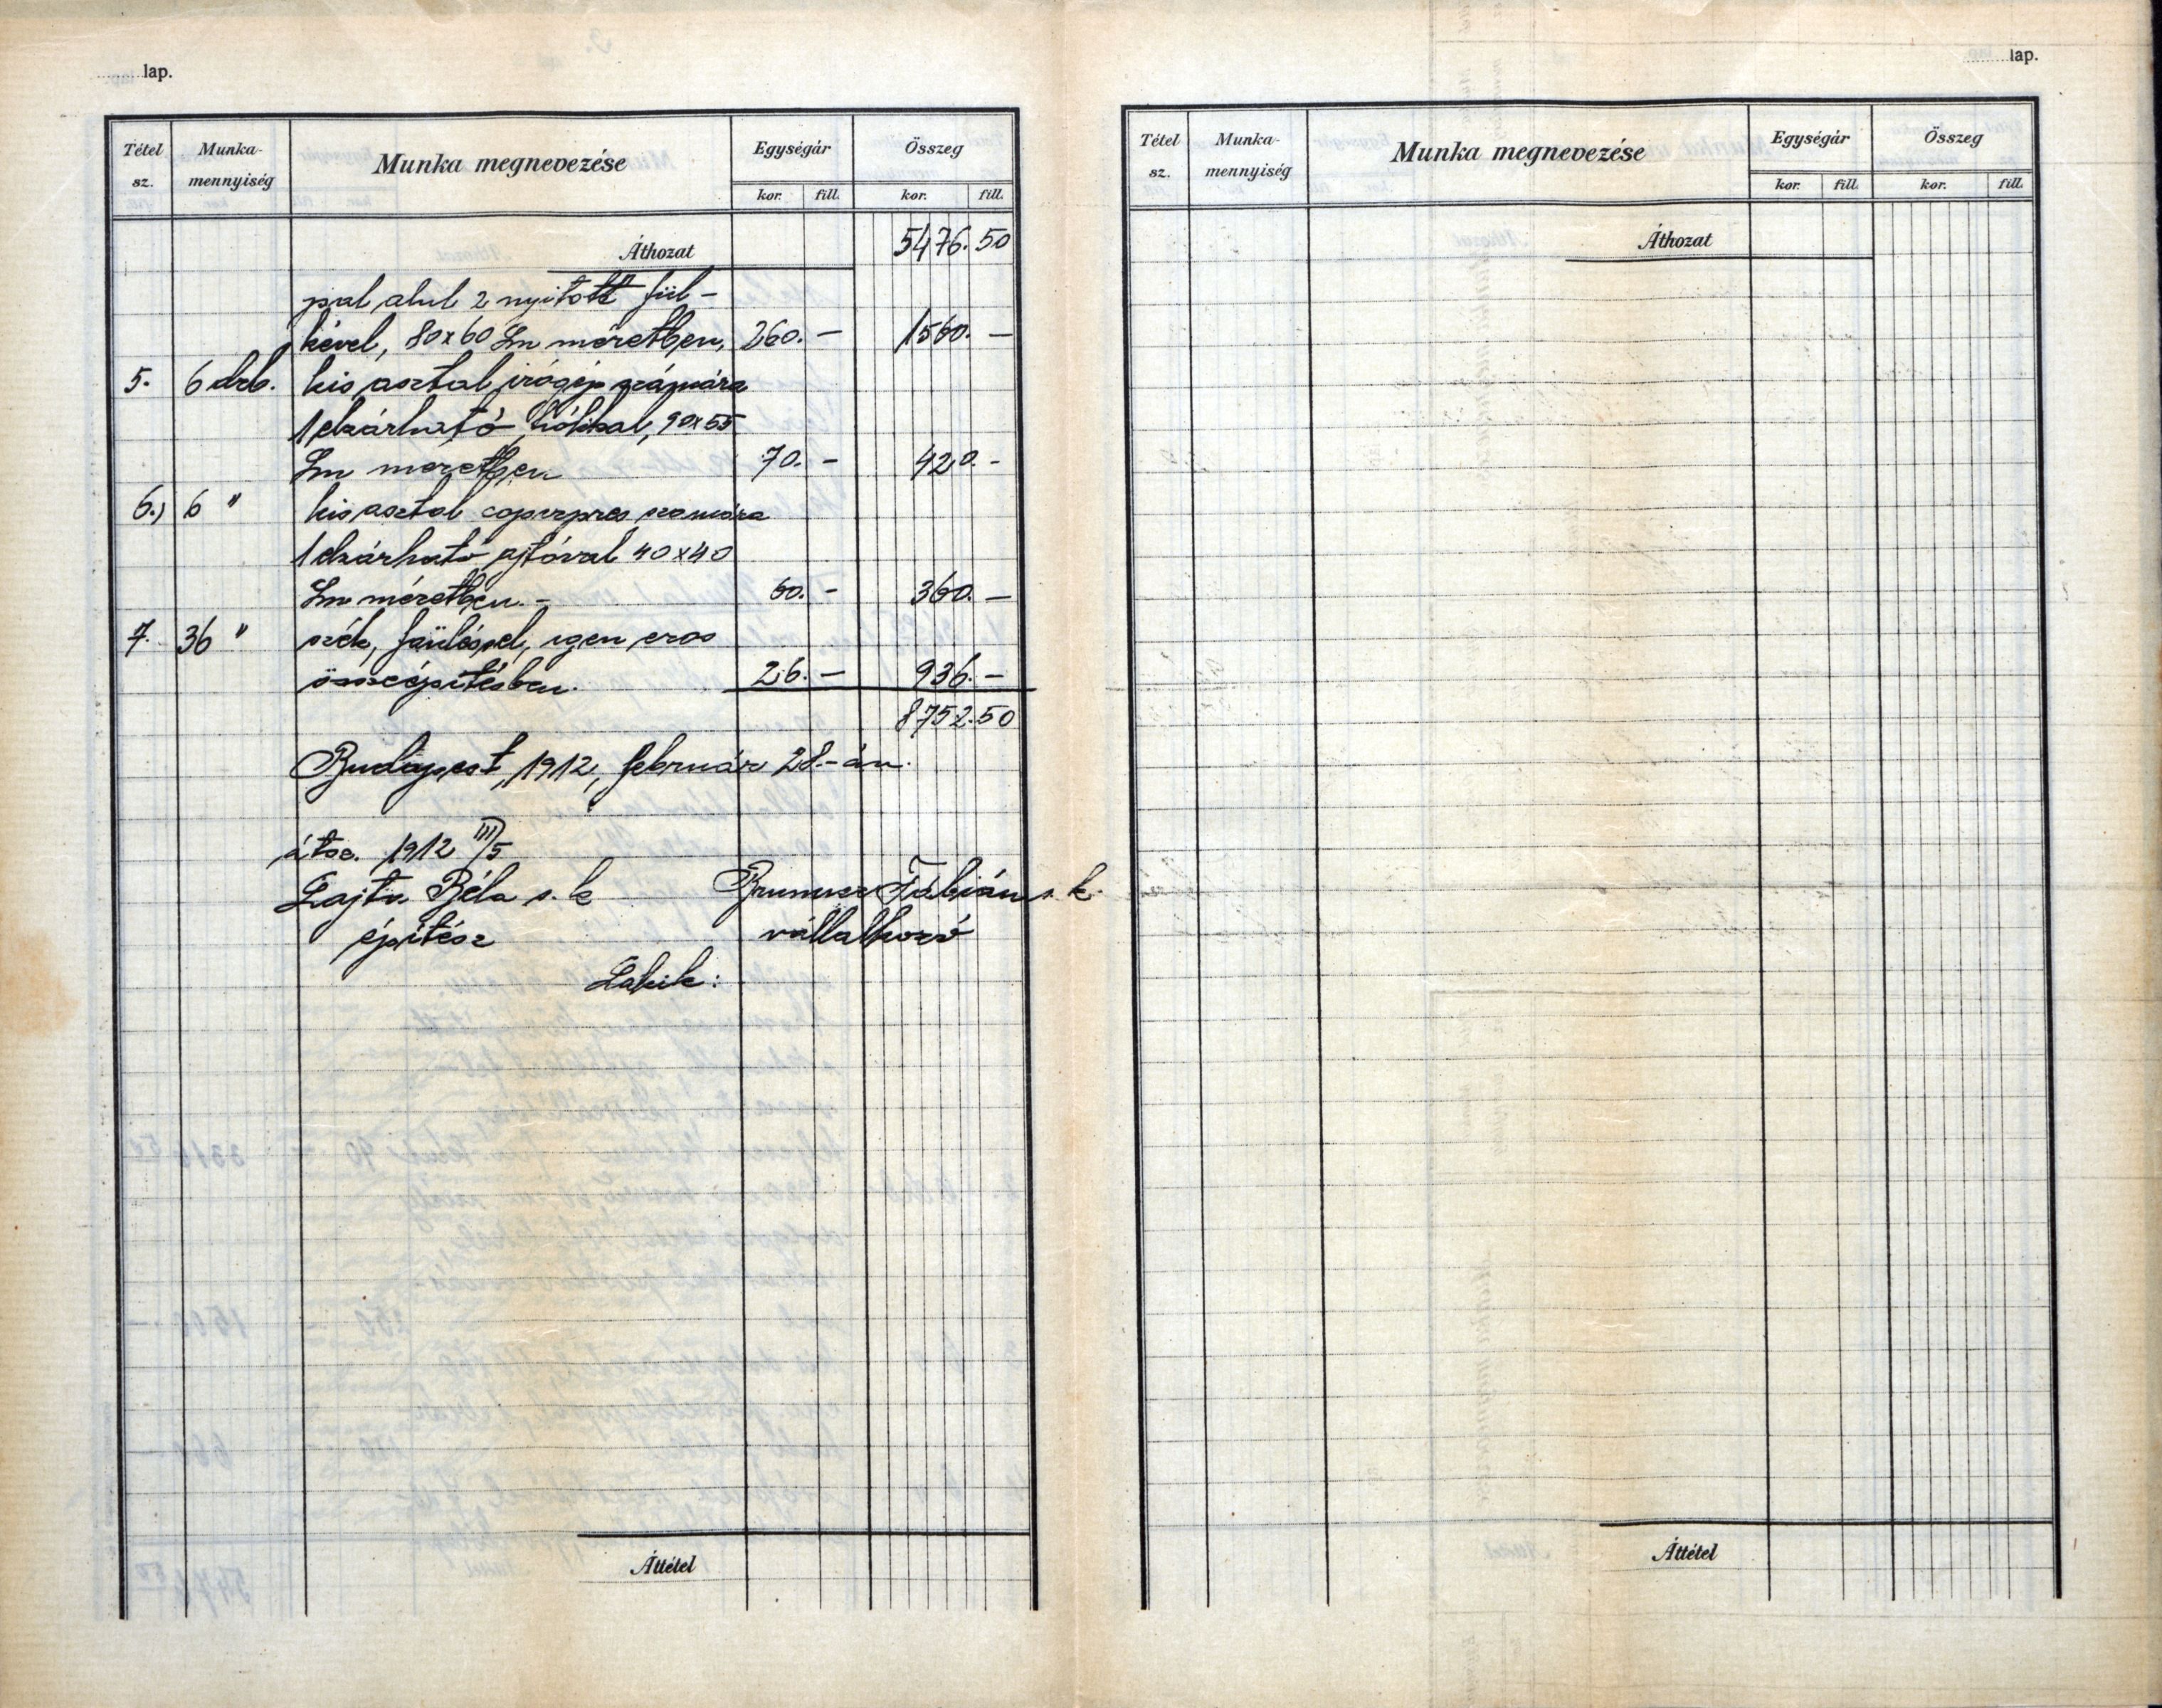 lap.
Tétel sz. Munka-mennyiség Munka megnevezése Egységár kor. fill. Összeg kor. fill.
Áthozat 5476.50
pal alul 2 nyitott fül-
kével, 80x60 Ȼm méretben, 260.- 1560.-
5. 6 drb. kis asztal irógép számára
1 elzárható fiókkal, 90x55
méretben 70.- 420.-
6.) 6 " kis asztal copirpres számára
1 elzárható ajtóval 40x40
méretben.- 60.- 360.-
7. 36 " szék, faüléssel, igen erős
összeépitésben. 26.- 936.-
8752.50
Budapest, 1912, február 28.-án.
átv. 1912 III/5
Lajta Béla s. k Brunner Fábián s. k.
épitész vállalkozó
Lakik:
Áttétel
lap.
Tétel sz. Munka-mennyiség Munka megnevezése Egységár kor. fill. Összeg kor. fill.
Áthozat
Áttétel